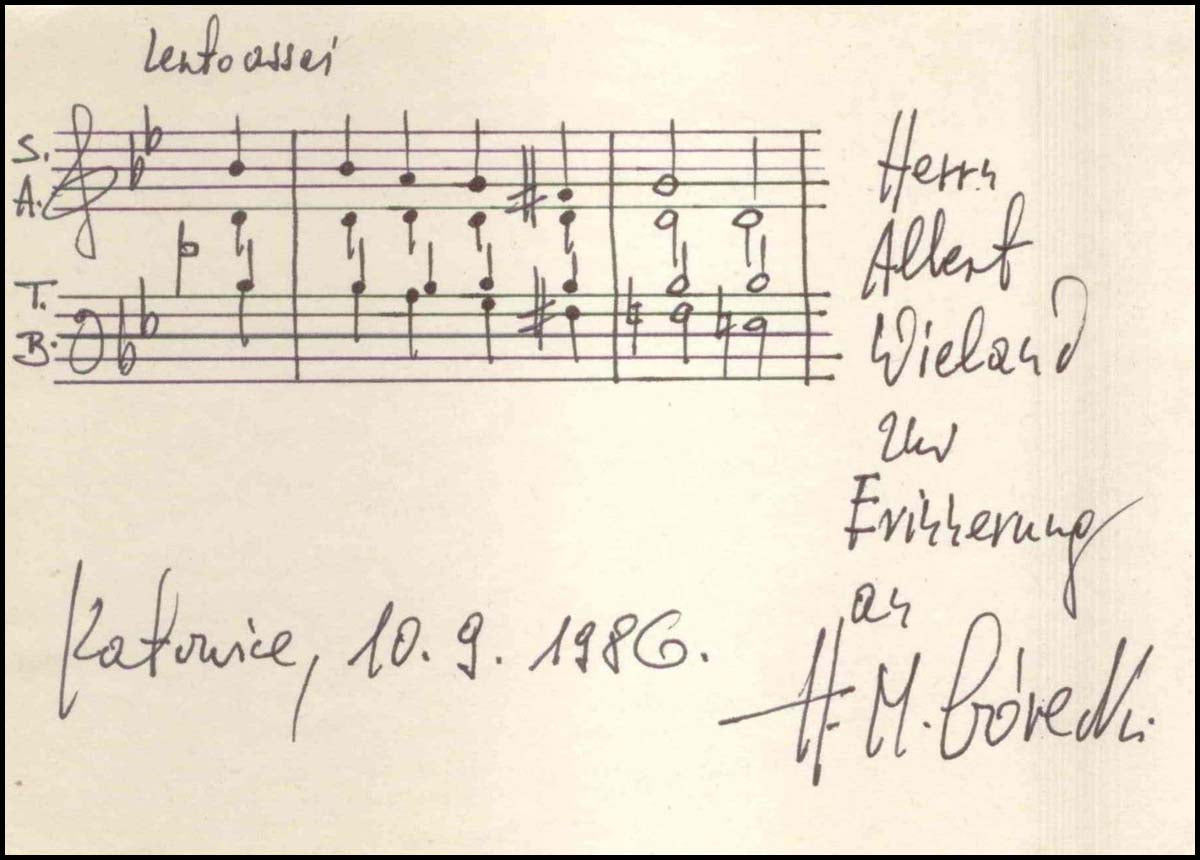 Lento assai
S.
A.
T.
B.
Herrn
Albert
Wieland
zur
Erinnerung
an
H. M. Górecki
Katowice, 10. 9. 1986.